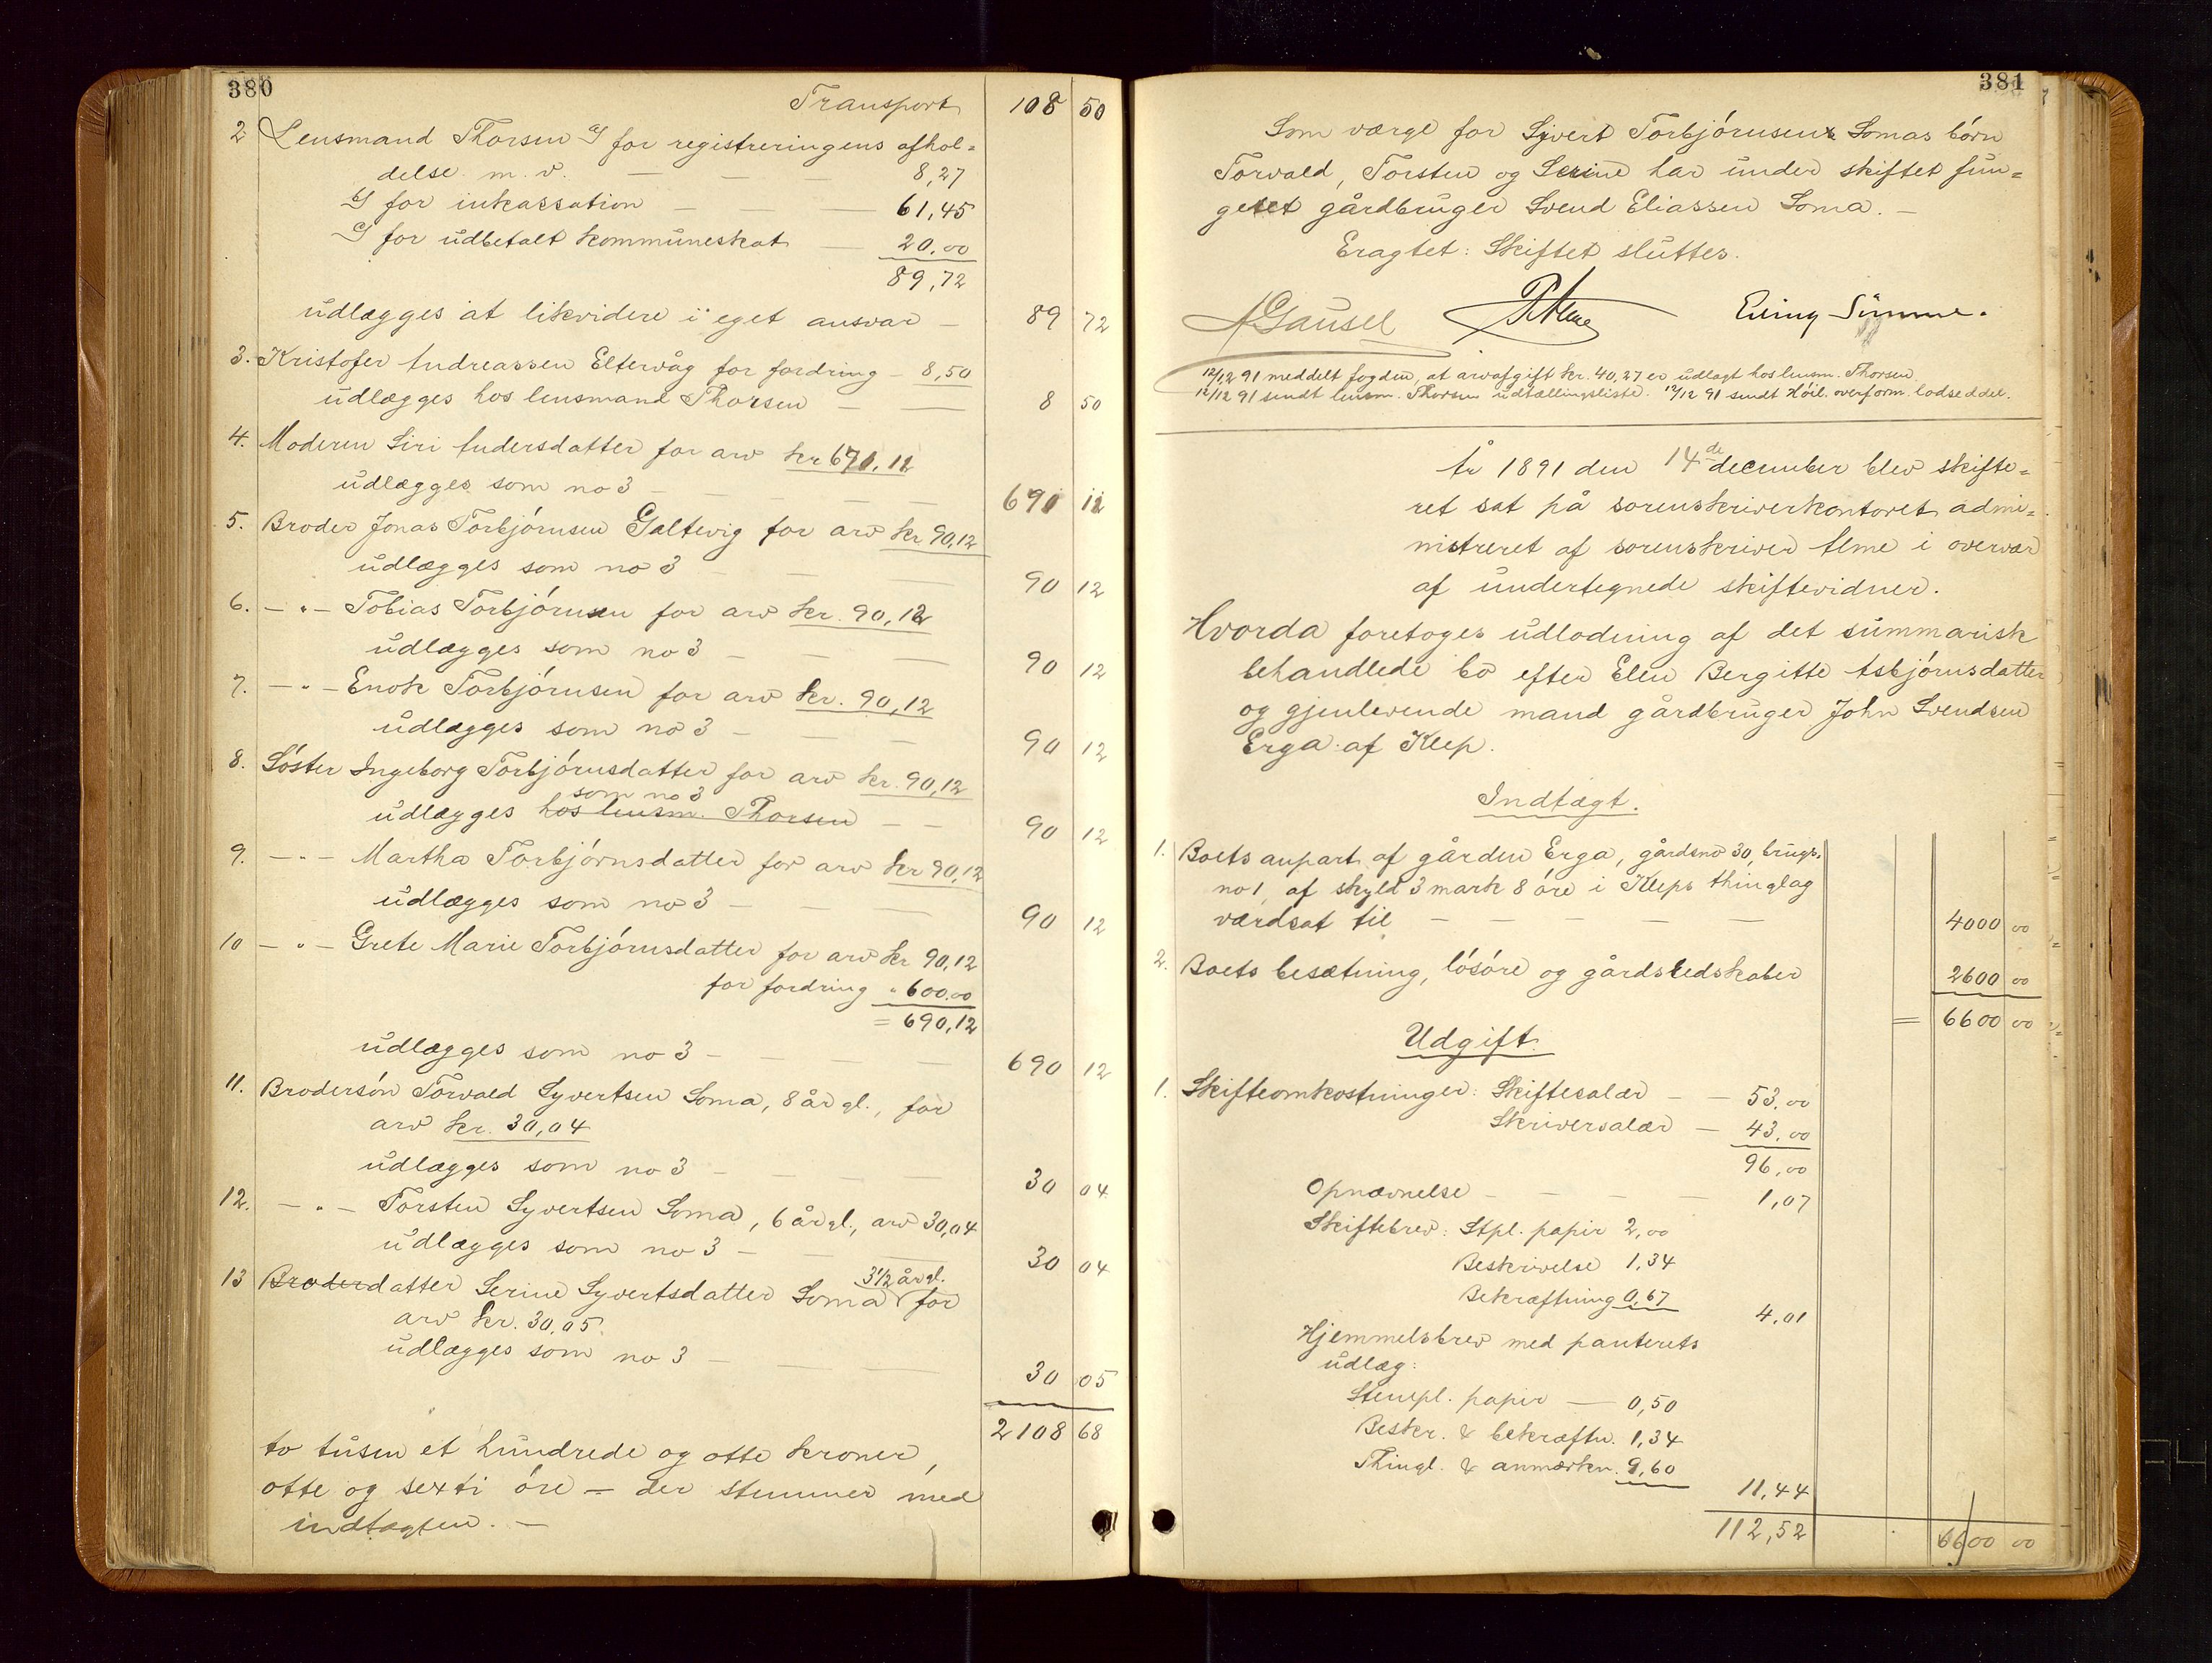 380
Transport 108 50
2 Lensmand Thorsen G for registreringens afhol=
delse m. v. — — — 8,27
G for inkassation — — 61,45
G for udbetalt kommuneskat — 20.00
89,72
udlægges at likvidere i eget ansvar — 89 72
3. Kristofer Andreassen Eltervåg for fordring — 8,50
udlægges hos lensmand Thorsen — — 8 50
4. Moderen Siri Andersdatter for arv kr 670,12
udlægges som no 3 — — — — 690 12
5. Broder Jonas Torbjörnsen Galtevig for arv kr 90,12
udlægges som no 3 — — — 90 12
6. — „ — Tobias Torbjörnsen for arv kr. 90,12
udlægges som no 3 — — — 90 12
7. — „ — Enok Torbjörnsen for arv kr. 90,12
udlægges som no 3 — — — 90 12
8. Söster Ingeborg Torbjörnsdatter for arv kr. 90,12
som no 3
udlægges hos lensm. Thorsen — — 90 12
9. — „ — Martha Torbjörnsdatter for arv kr 90,12
udlægges som no 3 — — — 90 12
10 — „ — Grete Marie Torbjörnsdatter for arv kr 90,12
for fordring „ 600.00
= 690,12
udlægges som no 3 — — — 690 12
11. Brodersön Torvald Syvertsen Soma, 8 år gl., for
arv kr. 30,04
udlægges som no 3 — — — 30 04
12. — „ — Torsten Syvertsen Soma, 6 år gl., arv 30,04
udlægges som no 3 — — — 30 04
3½ år gl.
13 Broderdatter Serine Syvertsdatter Soma for
arv kr. 30,05
udlægges som no 3 — — — 30 05
2108 68
to tusen et hundrede og otte kroner,
otte og sexti öre — der stemmer med
indtægten. —
381
Som værge for Sjvert Torbjörnsens Somas börn
Torvald, Torsten og Serine har under skiftet fun=
geret gårdbruger Svend Eliassen Soma. —
Eragtet: Skiftet sluttes.
AGausel Elling Sømme.
12/12 91 meddelt fogden, at arvafgift kr. 40,27 er udlagt hos lensm. Thorsen
12/12 91 sendt lensm. Thorsen udtællingsliste. 12/12 91 sendt Höil. overform. lodseddel.
År 1891 den 14de december blev skifte=
ret sat på sorenskriverkontoret admi=
nistreret af sorenskriver Alme i overvær
af undertegnede skiftevidner.
Hvorda foretoges udlodning af det summarisk
behandlede bo efter Elen Bergitte Asbjörnsdatter
og gjenlevende mand gårdbruger John Svendsen
Erga af Klep.
Indtægt.
1. Boets anpart af gården Erga, gårdsno 30, brugs.
no 1, af skyld 3 mark 8 öre i Kleps thinglag
værdsat til — — — — — 4000 00
2. Boets besætning, lösöre og gårdsredskaber 2600 00
= 6600 00
Udgift.
1. Skifteomkostninger: Skiftesalær — — 53.00
Skriversalær — 43.00
96,00
Opnævnelse — — — — 1,07
Skiftebrev: Stpl. papir 2,00
Beskrivelse 1,34
Bekræftning 0,67
4,01
Hjemmelsbrev med panterets
udlæg:
Stempl. papir — 0,50
Beskr. & bekræftn. 1,34
Thingl. & anmærkn. 9,60
11,44
112,52 6600 00